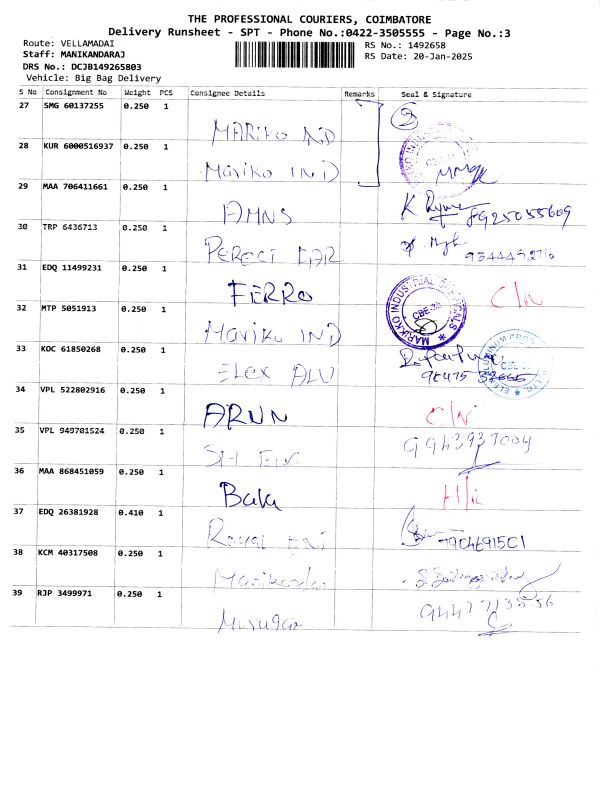 THE PROFESSIONAL COURIERS, COIMBATORE
Delivery Runsheet - SPT - Phone No.:0422-3505555 - Page No.:3
Route: VELLAMADAI
Staff: MANIKANDARAJ
DRS No.: DCJB149265803
Vehicle: Big Bag Delivery
RS No.: 1492658
RS Date: 20-Jan-2025
S No Consignment No Weight PCS Consignee Details Remarks Seal & Signature
27 SMG 60137255 0.250 1 MARIKO IND 2
28 KUR 6000516937 0.250 1 Mariko IND
29 MAA 706411661 0.250 1 AMNS K
30 TRP 6436713 0.250 1 PERECT EAR 9344492716
31 EDQ 11499231 0.250 1 FERRO C/N
32 MTP 5051913 0.250 1 Mariko IND MARIKKO INDUSTRIAL CBE
33 KOC 61850268 0.250 1 ELEX ALU
34 VPL 522802916 0.250 1 ARUN C/N
35 VPL 949701524 0.250 1 9943937004
36 MAA 868451059 0.250 1 Bala
37 EDQ 26381928 0.410 1 Royal 7904691501
38 KCM 40317508 0.250 1 Manikandan
39 RJP 3499971 0.250 1 Murugan